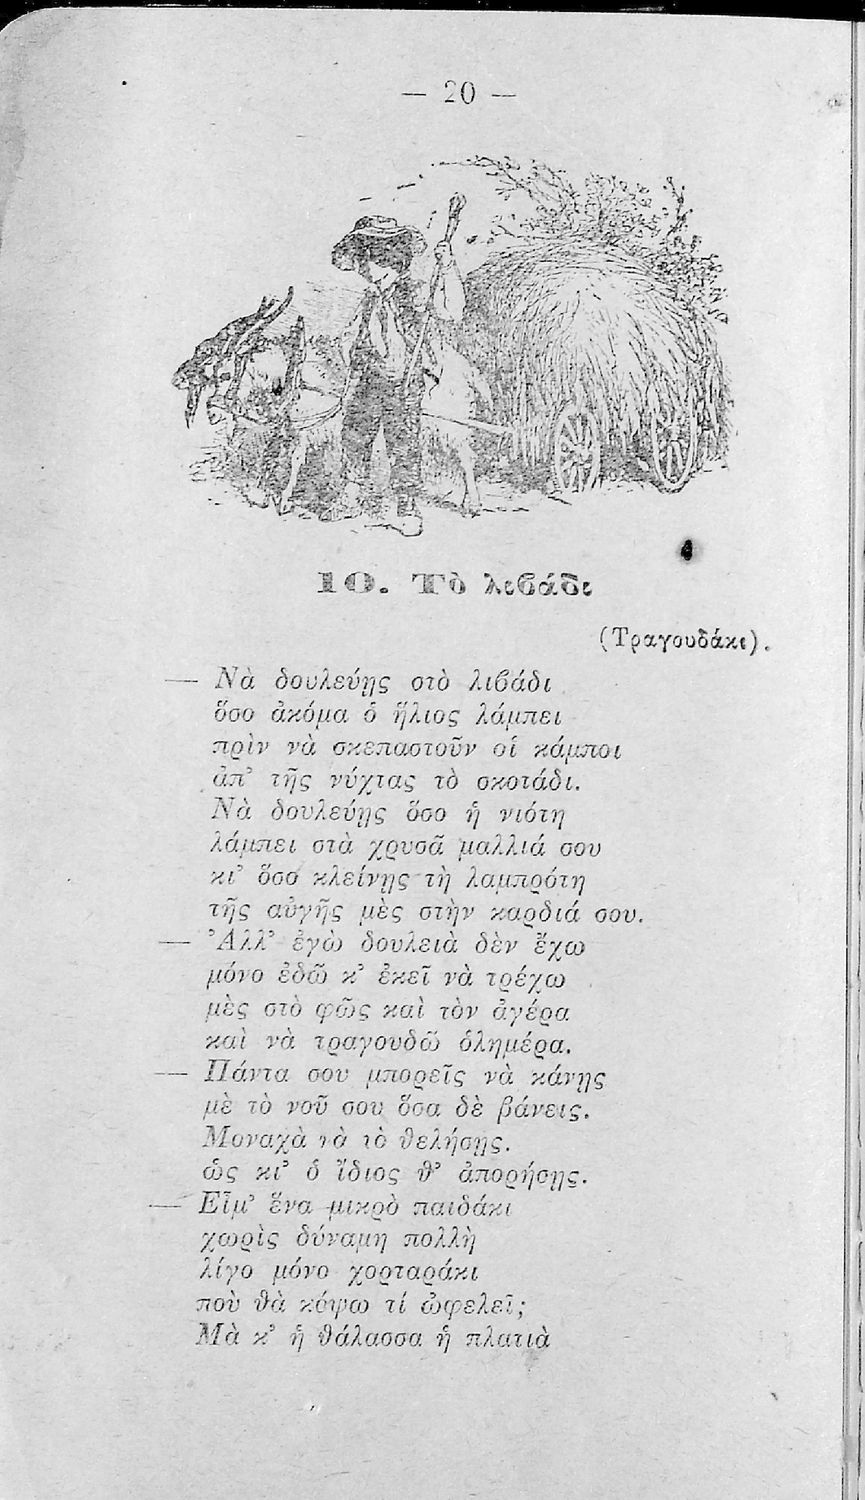 — 20 —
10. Τὸ λιβάδι
(Τραγουδάκι).
— Νὰ δουλεύῃς στὸ λιβάδι
ὅσο ἀκόμα ὁ ἥλιος λάμπει
πρὶν νὰ σκεπαστοῦν οἱ κάμποι
ἀπ' τῆς νύχτας τὸ σκοτάδι.
Νὰ δουλεύῃς ὅσο ἡ νιότη
λάμπει στὰ χρυσᾶ μαλλιά σου
κι' ὅσο κλείνῃς τὴ λαμπρότη
τῆς αὐγῆς μὲς στὴν καρδιά σου.
— Ἀλλ' ἐγὼ δουλειὰ δὲν ἔχω
μόνο ἐδῶ κ' ἐκεῖ νὰ τρέχω
μὲς στὸ φῶς καὶ τὸν ἀγέρα
καὶ νὰ τραγουδῶ ὁλημέρα.
— Πάντα σου μπορεῖς νὰ κάνῃς
μὲ τὸ νοῦ σου ὅσα δὲ βάνεις.
Μοναχὰ νὰ τὸ θελήσῃς.
ὡς κι' ὁ ἴδιος θ' ἀπορήσῃς.
— Εἶμ' ἕνα μικρὸ παιδάκι
χωρὶς δύναμη πολλὴ
λίγο μόνο χορταράκι
ποὺ θὰ κόψω τί ὠφελεῖ;
Μὰ κ' ἡ θάλασσα ἡ πλατιὰ